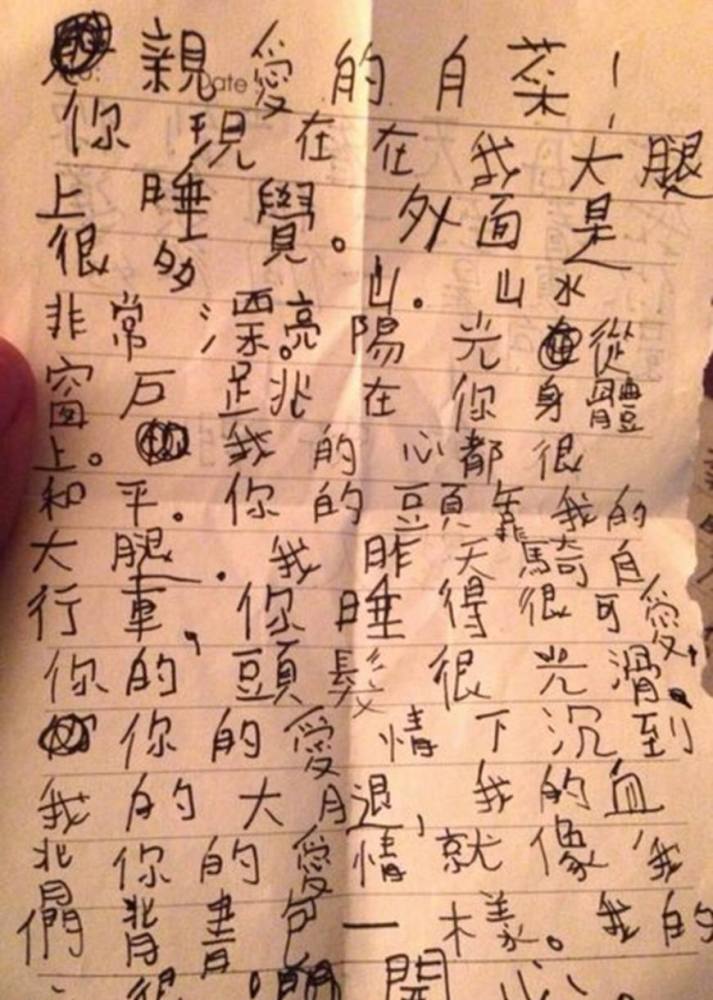 親愛的白菜—
Date
你現在在我大腿
上睡覺。外面是
很多山。山水
非常漂亮。陽光從
窗戶跳在你身體
上。我的心都很
和平。你的頭靠我的
大腿。我昨天騎自
行車,你睡得很可愛,
你的頭髮很光滑。
你的愛情下沉到
我的大腿,我的血
背你的愛情就像我
們背書包一樣。我的
很 開心